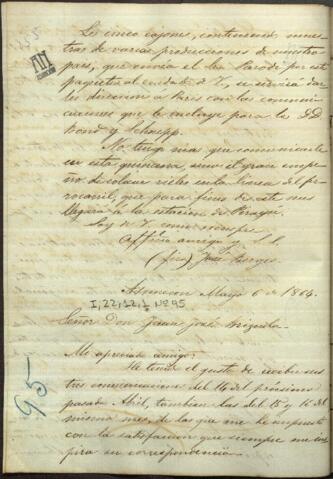 Los cinco cajones, conteniendo mues-
tras de varias producciones de nuestro
pais, que envia el Sor Parodi por este
paquete al cuidado de V., se servirá dar
les direccion á Paris con las comuni-
caciones que le incluyo para los D.D.
Bond y Schnepp.
No tengo mas que comunicarle
en esta quincena, sino el gran empe-
ño de colocar rieles en la linea del fer
rocarril, que para fines de este mes
llegará á la estacion de Pirayú.
Soy de V. como siempre
Affmo amigo y S. S.
(fir) José Berges
Asuncion Mayo 6 de 1864.
I,22,12,1 Nº 95
Señor Don Juan José Brizuela.
Mi apreciado amigo:
He tenido el gusto de recibir sus
tres comunicaciones del 14 del próximo
pasado Abril, tambien las del 15 y 16 del
mismo mes, de las que me he impuesto
con la satisfaccion que siempre me ins-
pira su correspondencia.
95